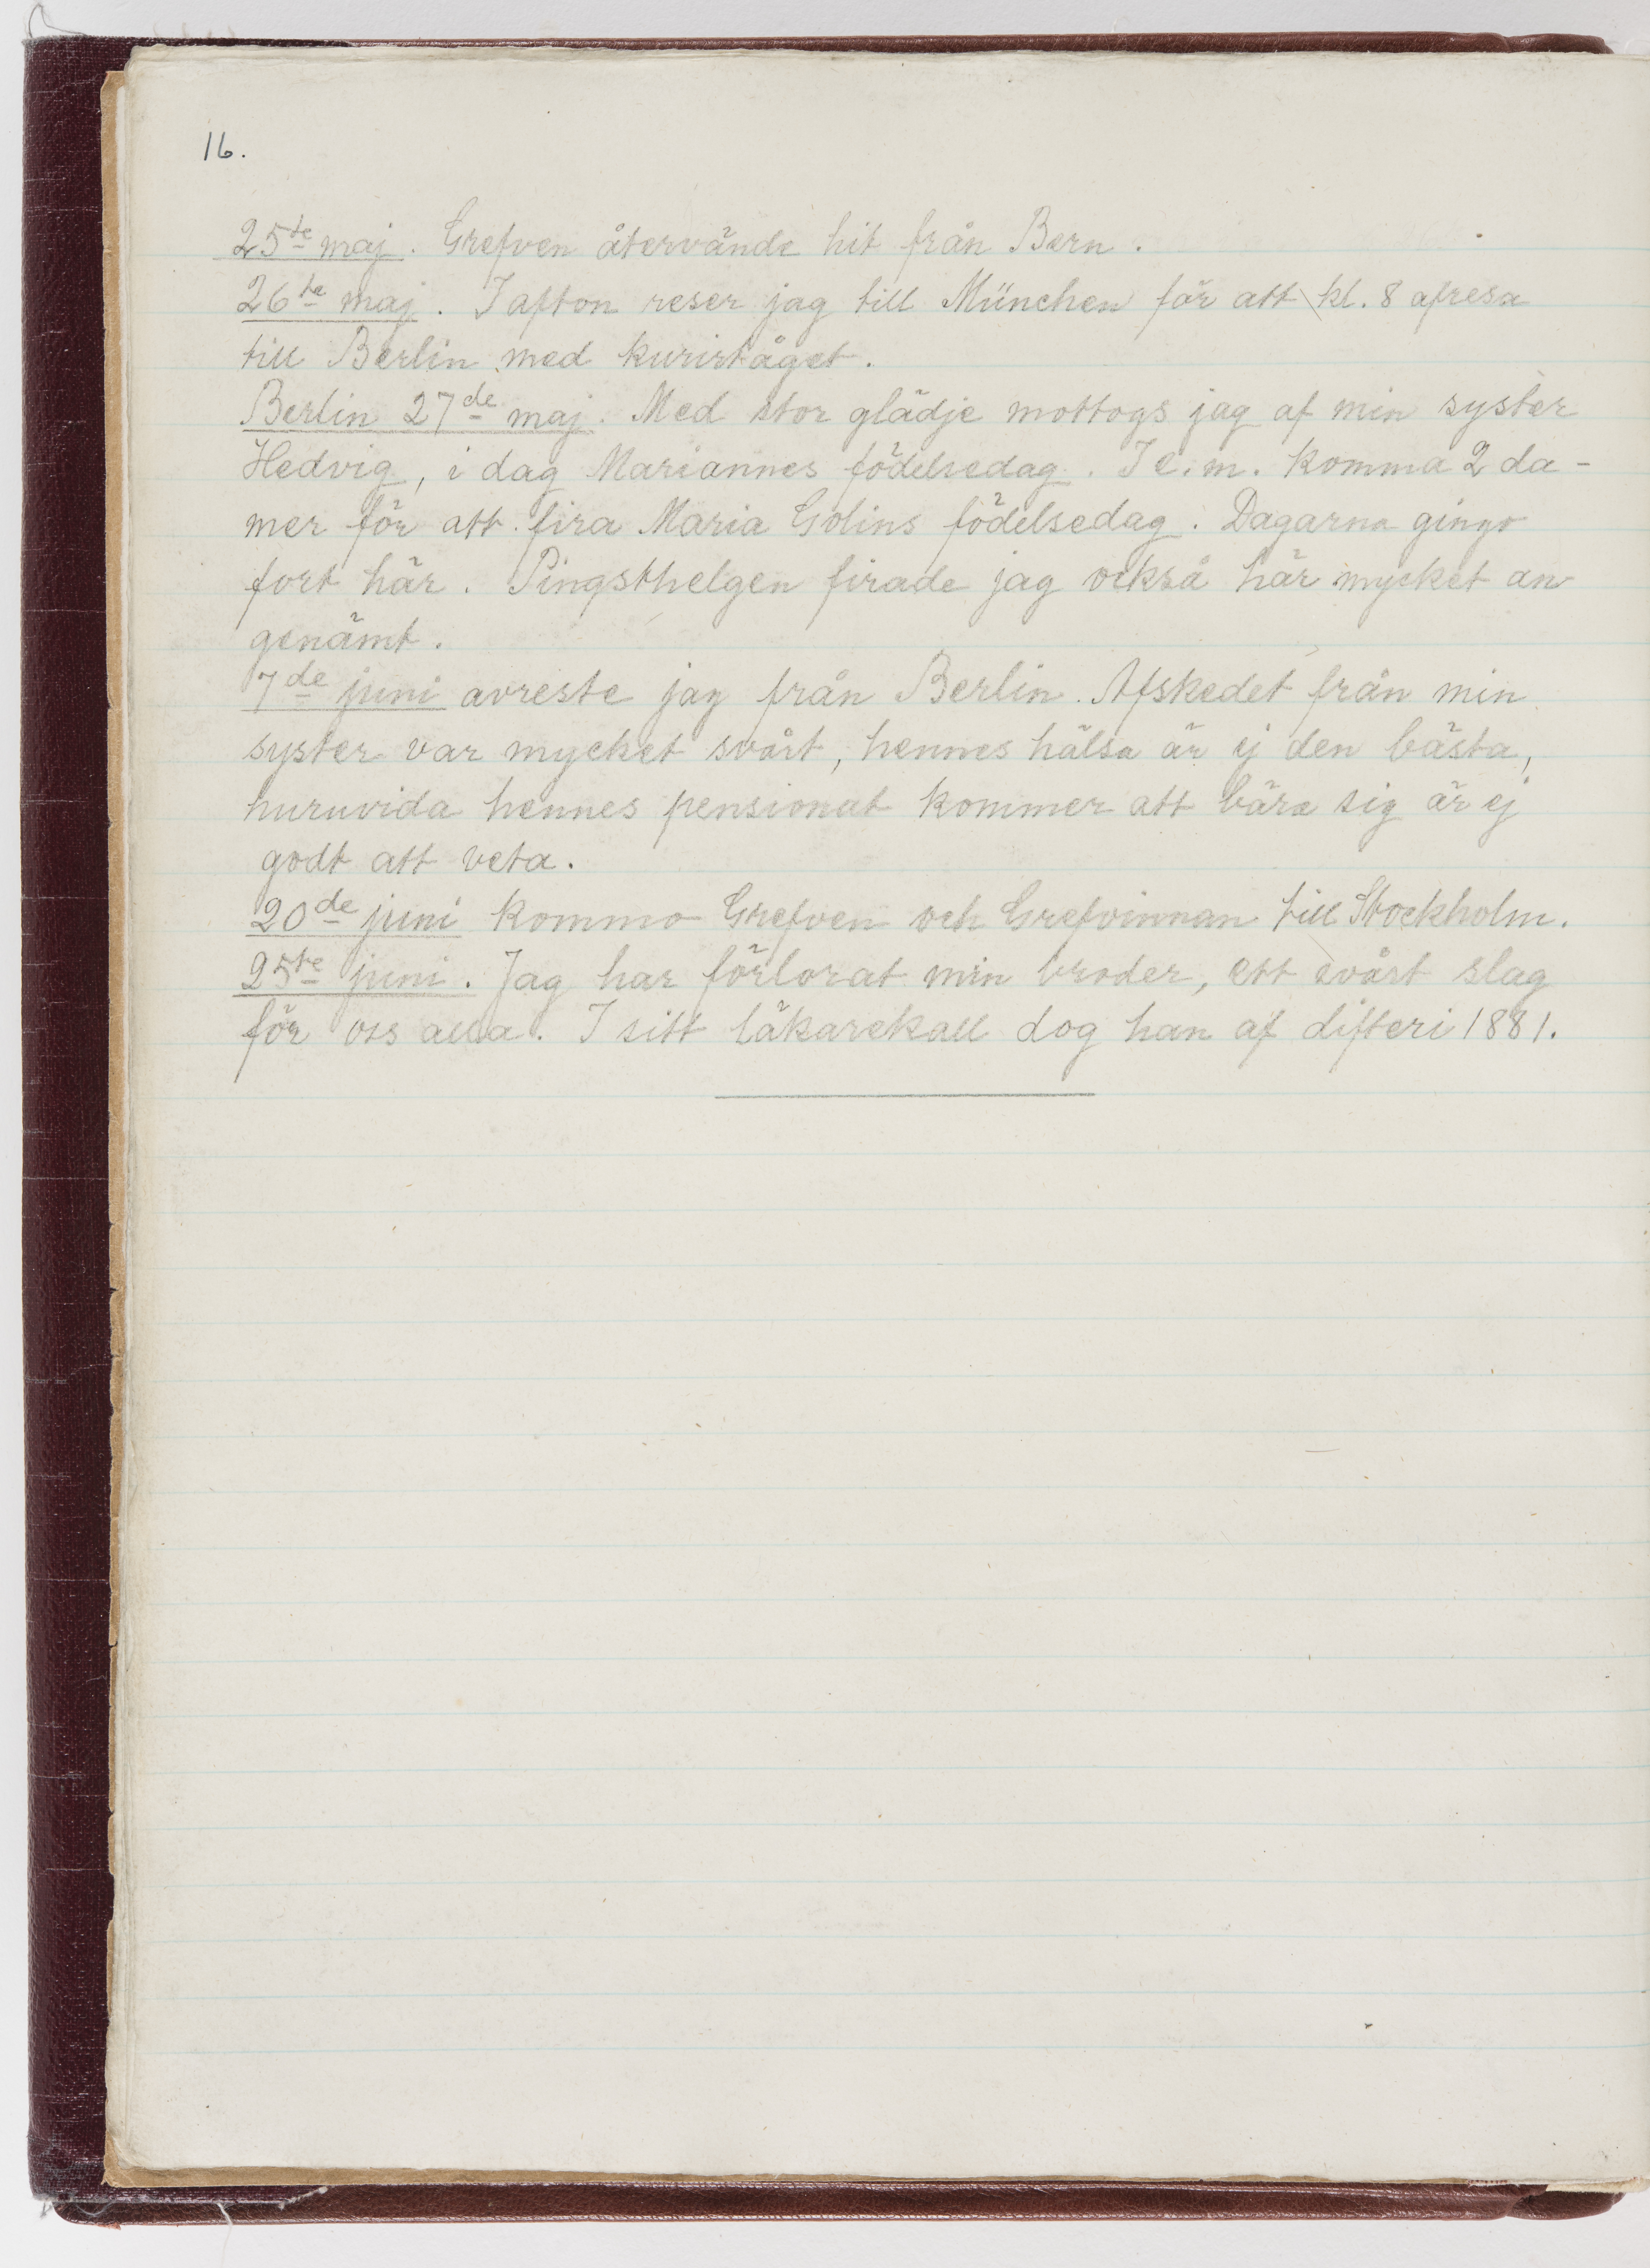 16.
25te maj. Grefven återvände hit från Bern.
26te maj. I afton reser jag till München för att kl. 8 afresa
till Berlin med kurirtåget.
Berlin 27de maj. Med stor glädje mottogs jag af min syster
Hedvig, i dag Mariannes födelsedag. I e.m. komma 2 da-
mer för att fira Maria Golins födelsedag. Dagarna gingo
fort här. Pingsthelgen firade jag också här mycket an
genämt.
7de juni avreste jag från Berlin. Afskedet från min
syster var mycket svårt, hennes hälsa är ej den bästa,
huruvida hennes pensionat kommer att bära sig är ej
godt att veta.
20de juni kommo Grefven och Grefvinnan till Stockholm.
25te juni. Jag har förlorat min broder, ett svårt slag
för oss alla. I sitt läkarekall dog han af difteri 1881.